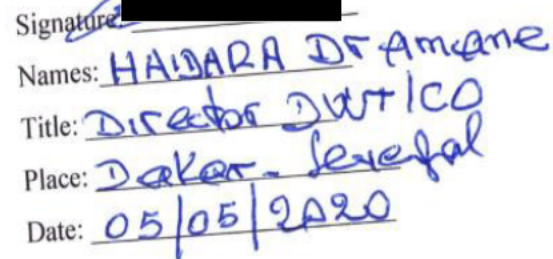 Signature:
Names: HAIDARA Dr Amane
Title: Director DWT/CO
Place: Dakar - Senegal
Date: 05/05/2020